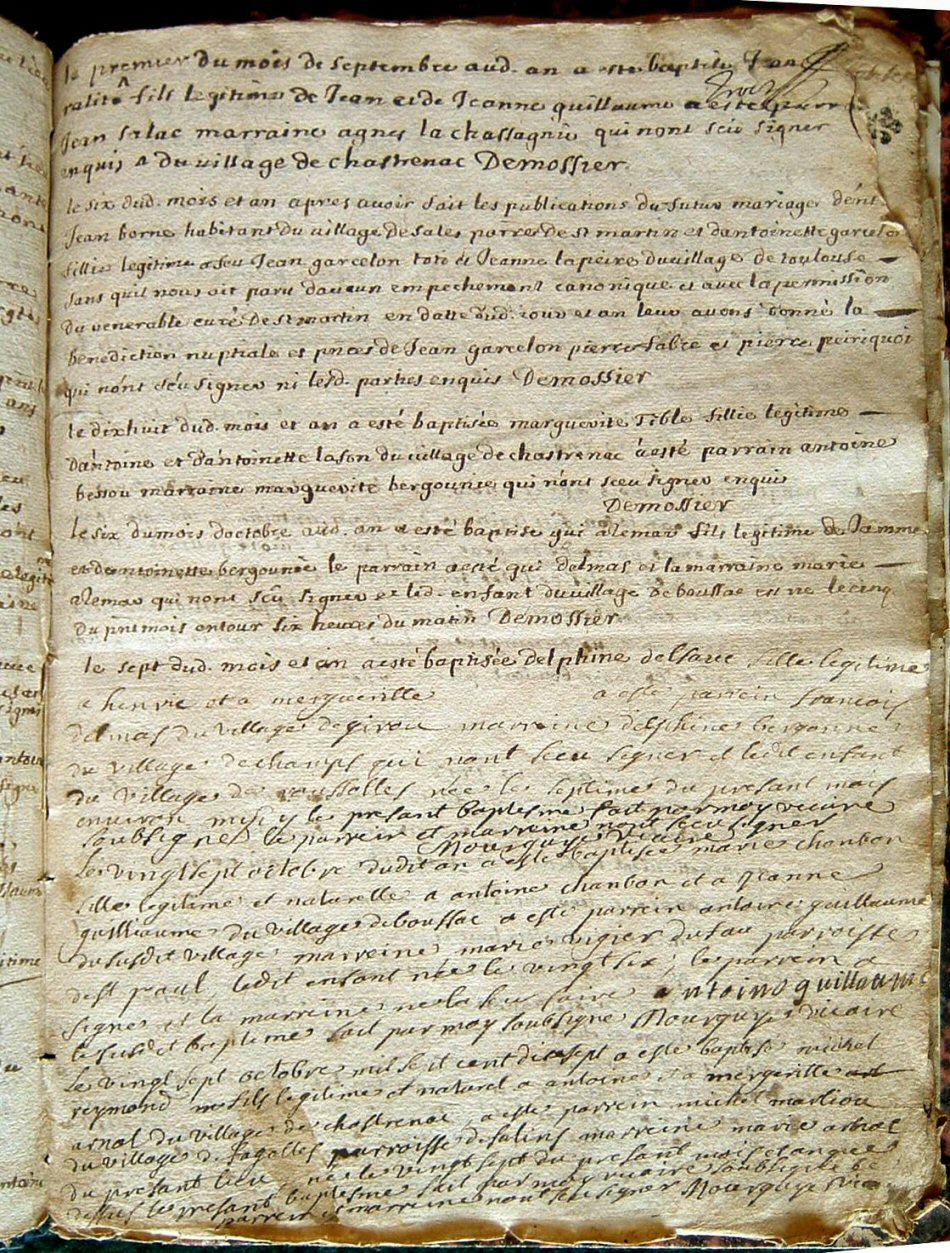 le premier du mois de septembre aud. an a esté baptisé Jean
fils legitime de Jean et de Jeanne guillaume a esté parr
Jean salac marraine agnes la chassagnie qui nont sceu signer
enquis du village de chastrenac Demossier
le six dud. mois et an apres avoir fait les publications du futur mariage
Jean borne habitant du village de sales parre de st martin et dantoinette garcelon
fillie legitime a feu Jean garcelon et Jeanne lapeire du village de toulouse
sans quil nous ait paru daucun empechement canonique et avec la permission
du venerable curé de st martin en datte dud. jour et an leur avons donné la
benediction nuptiale et pnces de Jean garcelon pierre fabre et pierre peiriquoi
qui nont sceu signer ni lesd. parties enquis Demossier
le dixhuit dud. mois et an a esté baptisée marguerite tible fillie legitime
dantoine et dantoinette lason du village de chastrenac a esté parrain antoine
bessou marraine marguerite bergounie qui nont sceu signer enquis
Demossier
le six du mois doctobre aud. an a esté baptisé gui alemar fils legitime de
et dantoinette bergounie le parrain a esté gui delmas et la marraine marie
alemar qui nont sceu signer et led. enfant du village de boussac est né le cinq
du pnt mois entour six heures du matin Demossier
le sept dud. mois et an a esté baptisée delphine delsauc fille legitime
a henrie et a merguerille a esté parrein francois
delmas du village de girou marreine delphine bergonne
du village de champs qui nont sceu signer et ledit enfant
du village de roussolles née le septieme du presant mois
environ midy le presant baptesme fait par moy vicaire
soubsigné le parrein et marreine nont sceu signer
Mourguye vicaire
Le vingt sept octobre dudit an a esté baptisée marie chanbon
fille legitime et naturelle a antoine chanbon et a Jeanne
guilliaume du village de boussac a esté parrein antoine guillaume
du susdit village marreine marie vigier du fau parroisse
de st paul, ledit enfant née le vingt six; le parrein a
signé et la marreine ne la sceu faire antoine guillaume
le susdit baptesme fait par moy soubsigne Mourguye vicaire
Le vingt sept octobre mil set cent dixsept a esté baptisé michel
reymond fils legitime et naturel a antoine et a mergerille
arnal du village de chastrenac a esté parrein michel marliou
du village de fagolles parroisse de salins marreine marie arnal
du presant lieu, né le vingt sept du presant mois et an que
dessus le presant baptesme fait par moy vicaire soubsigné le
parrein et marreine nont sceu signer Mourguye vicaire